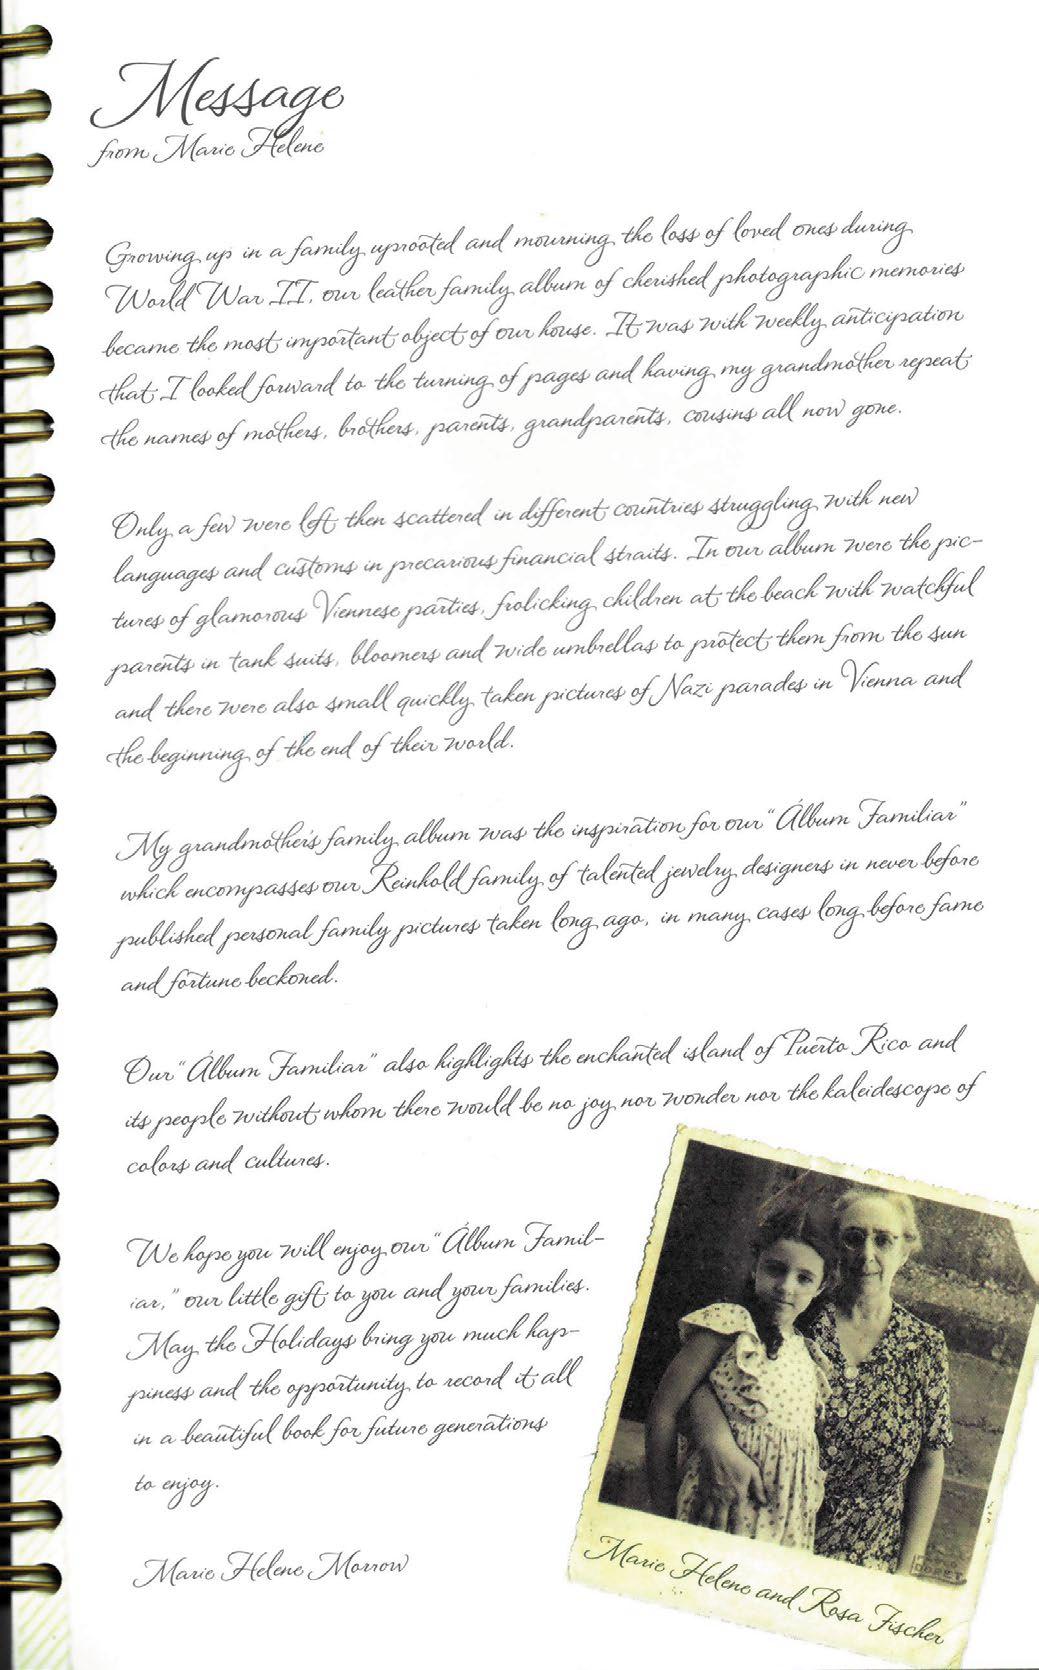 Message
from Marie Helene
Growing up in a family uprooted and mourning the loss of loved ones during
World War II, our leather family album of cherished photographic memories
became the most important object of our house. It was with weekly anticipation
that I looked forward to the turning of pages and having my grandmother repeat
the names of mothers, brothers, parents, grandparents, cousins all now gone.
Only a few were left then scattered in different countries struggling with new
languages and customs in precarious financial straits. In our album were the pic-
tures of glamorous Viennese parties, frolicking children at the beach with watchful
parents in tank suits, bloomers and wide umbrellas to protect them from the sun
and there were also small quickly taken pictures of Nazi parades in Vienna and
the beginning of the end of their world.
My grandmother's family album was the inspiration for our "Álbum Familiar"
which encompasses our Reinhold family of talented jewelry designers in never before
published personal family pictures taken long ago, in many cases long before fame
and fortune beckoned.
Our "Álbum Familiar" also highlights the enchanted island of Puerto Rico and
its people without whom there would be no joy nor wonder nor the kaleidescope of
colors and cultures.
We hope you will enjoy our "Álbum Famil-
iar," our little gift to you and your families.
May the Holidays bring you much hap-
piness and the opportunity to record it all
in a beautiful book for future generations
to enjoy.
Marie Helene Morrow
Marie Helene and Rosa Fischer